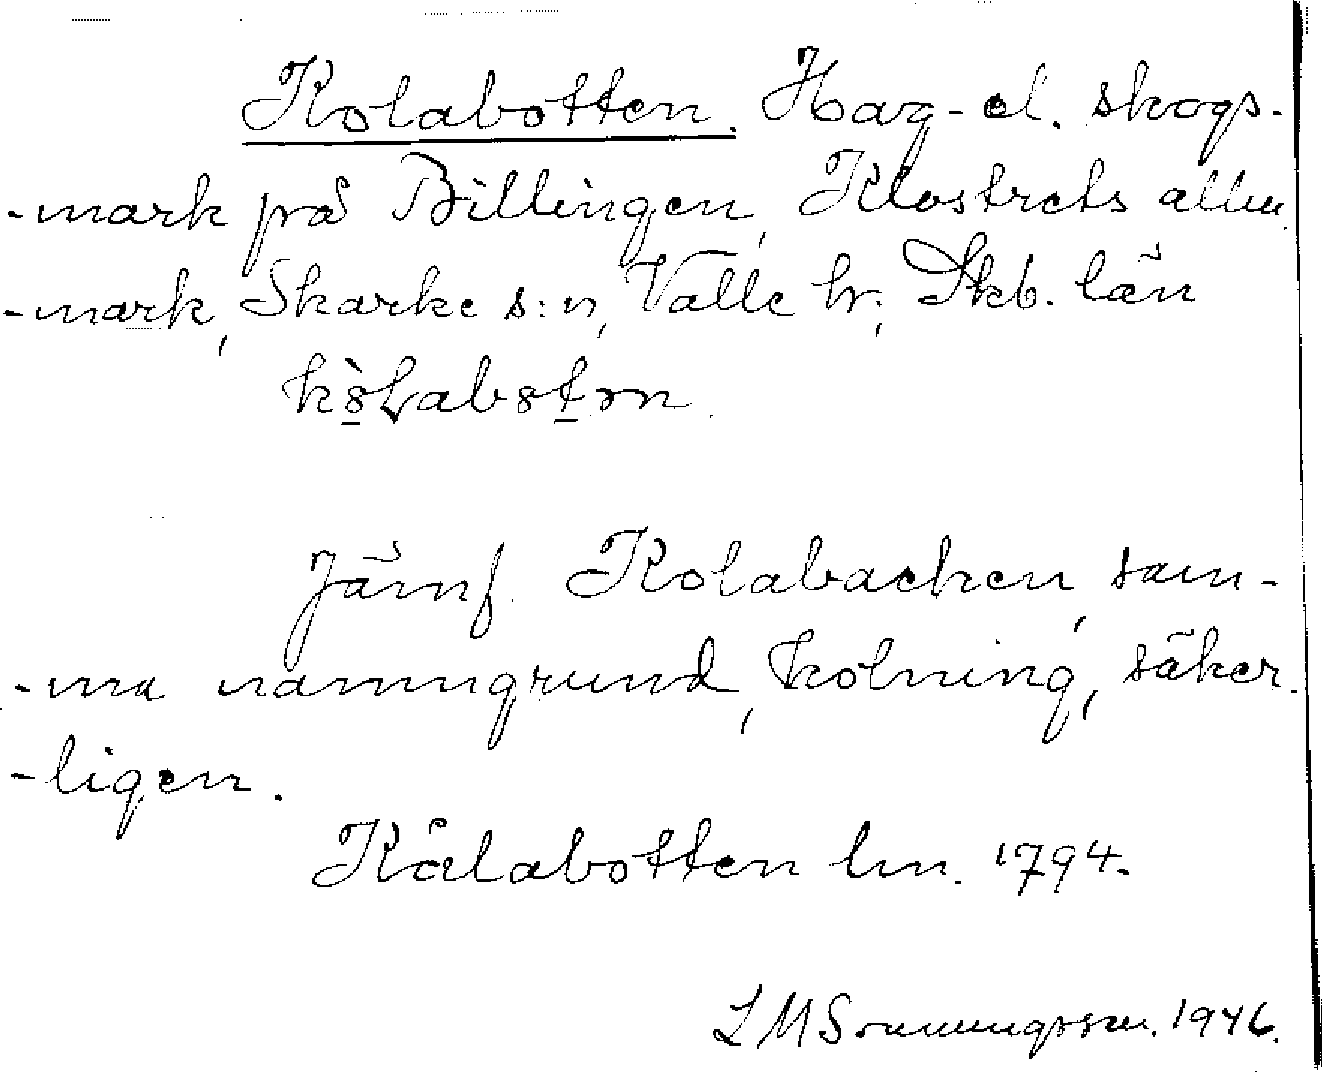 Kolabotten. Hag- el. skogs-
-mark på Billingen, Klostrets allm.
-mark, Skarke s:n, Valle hr, Skb. län
Järnf. Kolabacken, sam-
-ma namngrund, kolning, säker-
-ligen.
Kålabotten lm. 1794.
1946.